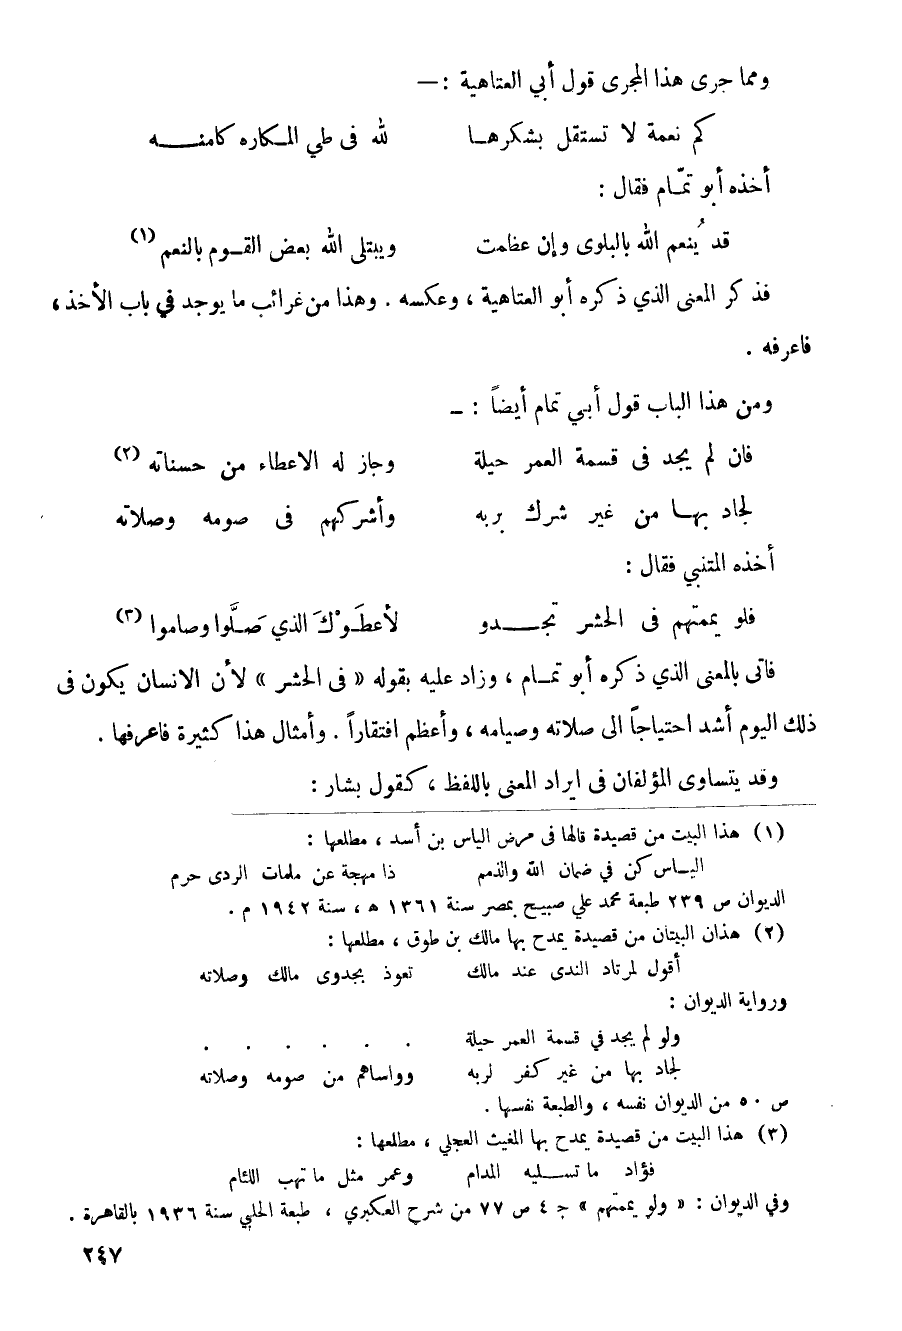 ومما جرى هذا المجرى قول أبي العتاهية : —
كم نعمة لا تستقل بشكرهـا لله فى طي المـكاره كامنـــه
أخذه أبو تمّـام فقال :
قد يُنعم الله بالبلوى وإن عظمت ويبتلى الله بعض القـوم بالنعم (١)
فذكر المعنى الذي ذكره أبو العتاهية ، وعكسه . وهذا من غرائب ما يوجد في باب الأخذ ،
فاعرفه .
ومن هذا الباب قول أبي تمام أيضاً : ـ
فان لم يجد فى قسمة العمر حيلة وجاز له الاعطاء من حسناته (٢)
لجاد بهـا من غير شرك بربه وأشركهم فى صومه وصلاته
أخذه المتنبي فقال :
فلو يممتهم فى الحشر تجـــدو لأعطَـوْكَ الذي صَـلَّوا وصاموا (٣)
فاتى بالمعنى الذي ذكره أبو تمـام ، وزاد عليه بقوله « فى الحشر » لأن الانسان يكون فى
ذلك اليوم أشد احتياجاً الى صلاته وصيامه ، وأعظم افتقاراً . وأمثال هذا كثيرة فاعرفها .
وقد يتساوى المؤلفان فى ايراد المعنى باللفظ ، كقول بشار :
(١) هذا البيت من قصيدة قالها فى مرض الياس بن أسد ، مطلعها :
اليـاس كن في ضمان الله والذمم ذا مهجة عن ملمات الردى حرم
الديوان ص ٢٣٩ طبعة محمد علي صبيح بمصر سنة ١٣٦١ ه ، سنة ١٩٤٢ م .
(٢) هذان البيتان من قصيدة يمدح بها مالك بن طوق ، مطلعها :
أقول لمرتاد الندى عند مالك تعوذ بجدوى مالك وصلاته
ورواية الديوان :
ولو لم يجد في قسمة العمر حيلة . . . . . .
لجاد بها من غير كفر لربه وواساهم من صومه وصلاته
ص ٥٠ من الديوان نفسه ، والطبعة نفسها .
(٣) هذا البيت من قصيدة يمدح بها المغيث العجلي ، مطلعها :
فؤاد ما تســليه المدام وعمر مثل ما تهب اللئام
وفي الديوان : « ولو يممتهم » جـ ٤ ص ٧٧ من شرح العكبري ، طبعة الحلبي سنة ١٩٣٦ بالقاهرة .
٢٤٧